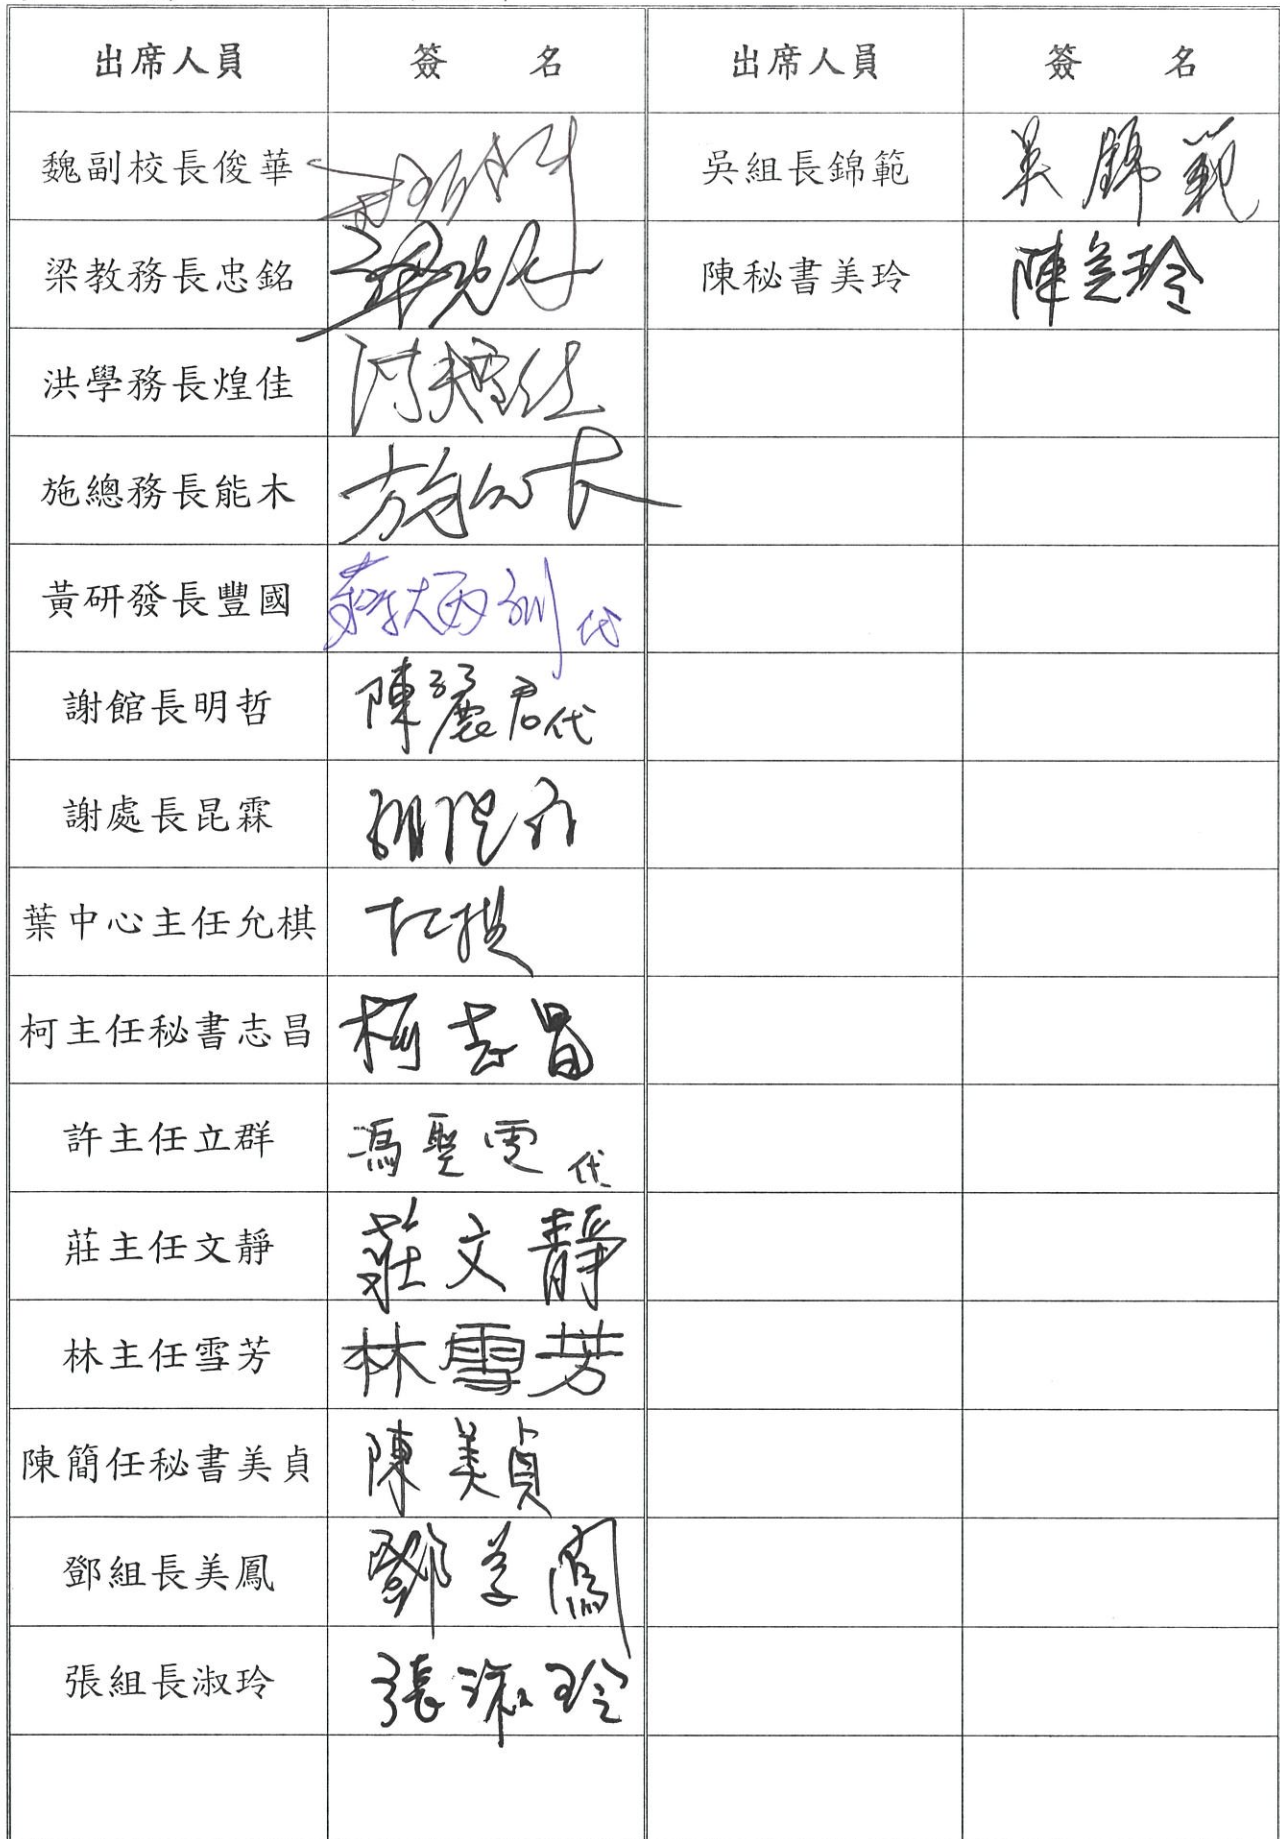 出席人員 簽 名 出席人員 簽 名
魏副校長俊華 吳組長錦範 吳錦範
梁教務長忠銘 陳秘書美玲 陳美玲
洪學務長煌佳
施總務長能木
黃研發長豐國 代
謝館長明哲 陳麗君代
謝處長昆霖
葉中心主任允棋
柯主任秘書志昌 柯志昌
許主任立群 馮聖雯 代
莊主任文靜 莊文靜
林主任雪芳 林雪芳
陳簡任秘書美貞 陳美貞
鄧組長美鳳 鄧美鳳
張組長淑玲 張淑玲